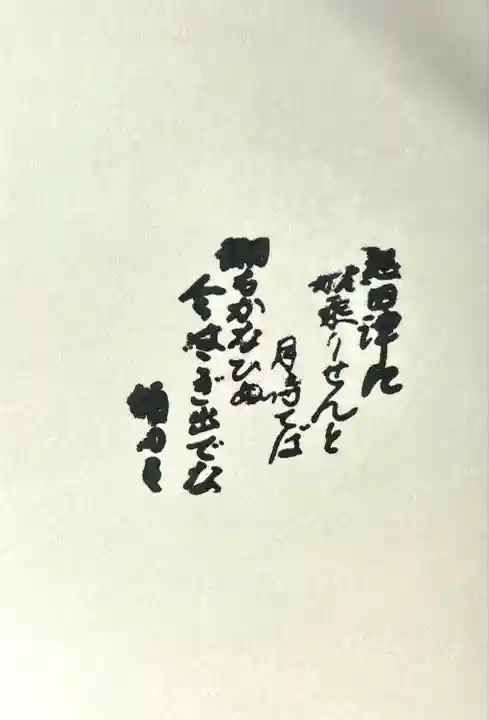 熟田津に
船乗りせんと
月待てば
潮もかなひぬ
今はこぎ出でむ